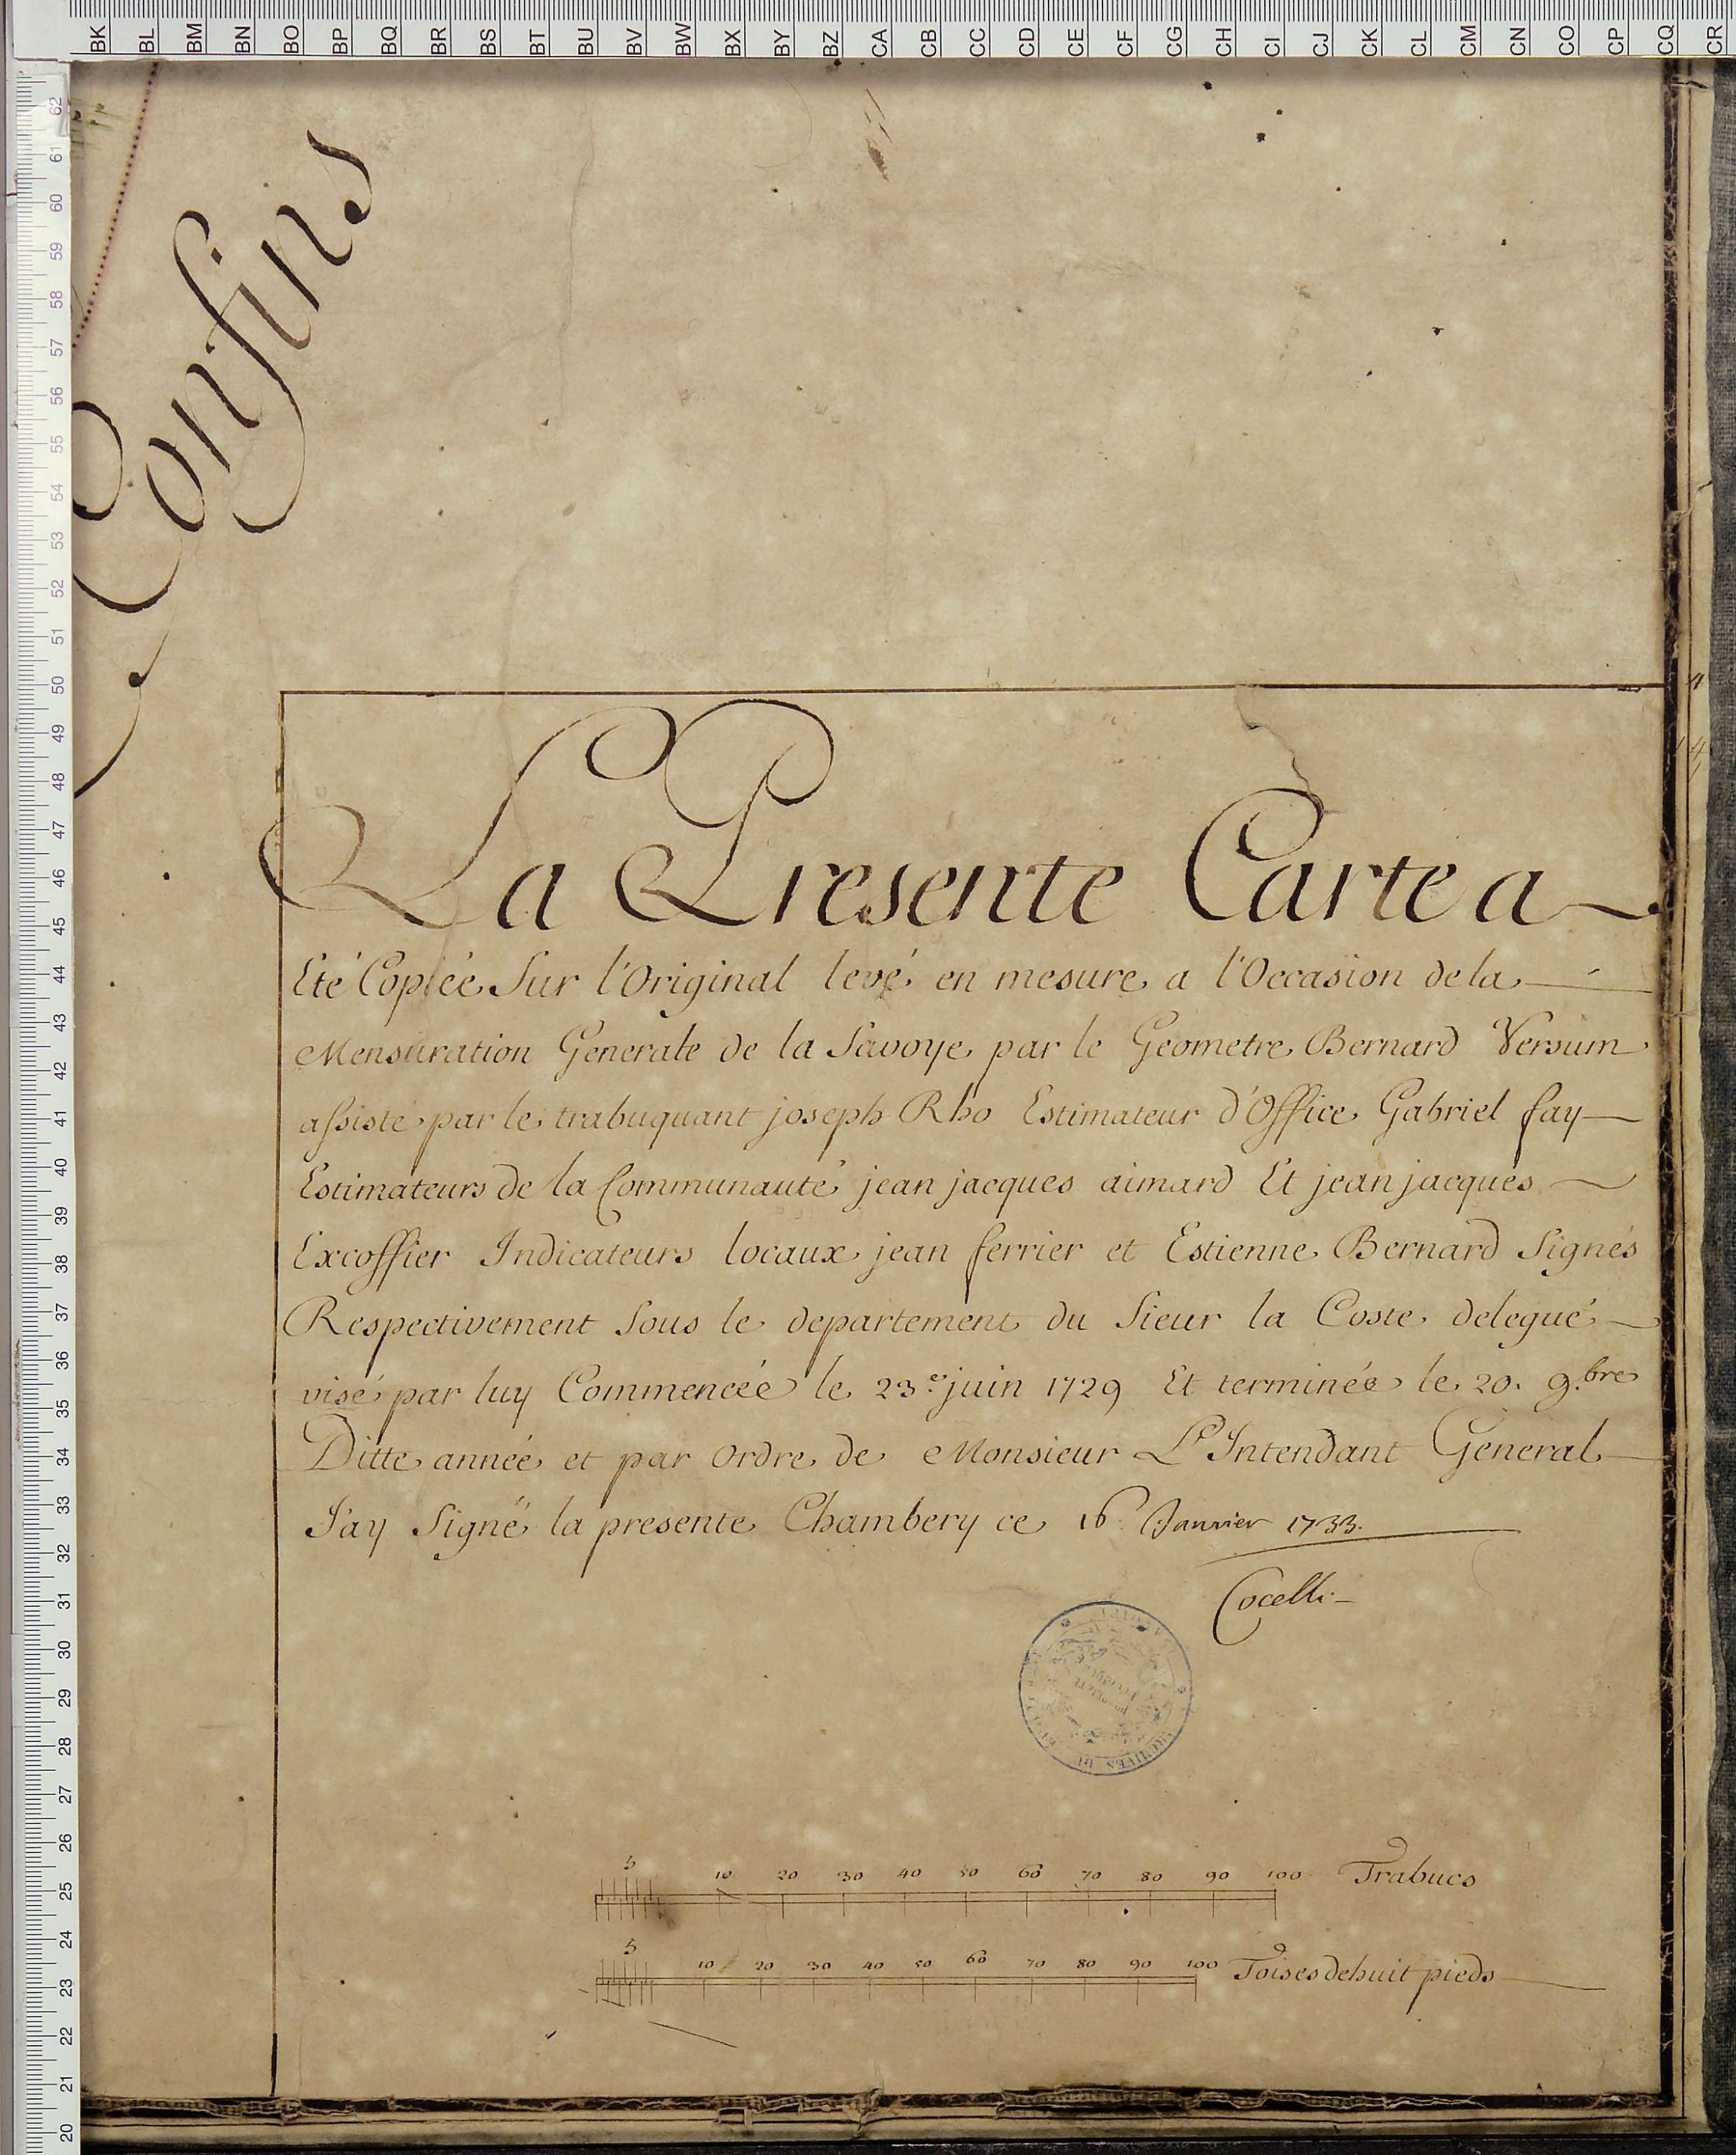 BK BL BM BN BO BP BQ BR BS BT BU BV BW BX BY BZ CA CB CC CD CE CF CG CH CI CJ CK CL CM CN CO CP CQ CR
62
61
60
59
58
57
56
55
54
53
52
51
50
49
48
47
46
45
44
43
42
41
40
39
38
37
36
35
34
33
32
31
30
29
28
27
26
25
24
23
22
21
20
Confins
La Presente Carte a
Eté Copiée Sur l'Original levé en mesure a l'Occasion de la
Mensuration Generale de la Savoye par le Geometre Bernard Versum
assisté par le trabuquant joseph Rho Estimateur d'Office Gabriel fay
Estimateurs de la Communauté jean jacques aimard Et jean jacques
Excoffier Indicateurs locaux jean ferrier et Estienne Bernard Signés
Respectivement Sous le departement du Sieur la Coste delegué
visé par luy Commencée le 23.e juin 1729 Et terminée le 20. 9.bre
Ditte année et par Ordre de Monsieur L'Intendant General
J'ay Signé la presente Chambery ce 16 Janvier 1733.
Cocelli
5 10 20 30 40 50 60 70 80 90 100 Trabucs
5 10 20 30 40 50 60 70 80 90 100 Toises de huit pieds